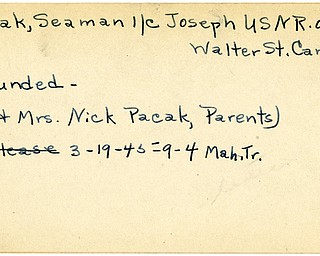 ak, Seaman 1/c Joseph USNR. 
Walter St. Ca
unded -
Mrs. Nick Pacak, Parents)
lease 3-19-45-9-4 Mah. Tr.